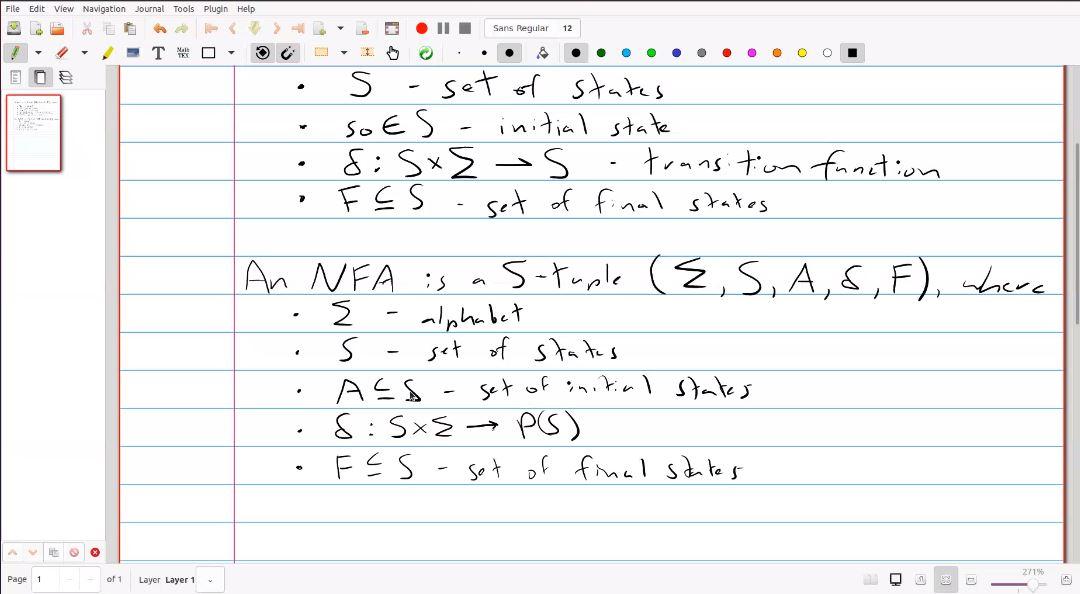 File Edit View Navigation Journal Tools Plugin Help
Sans Regular 12
• S - set of states
• s0 ∈ S - initial state
• δ : S × Σ → S - transition function
• F ⊆ S - set of final states
An NFA is a 5-tuple (Σ, S, A, δ, F), where
• Σ - alphabet
• S - set of states
• A ⊆ S - set of initial states
• δ : S × Σ → P(S)
• F ⊆ S - set of final states
Page 1 of 1 Layer Layer 1 271%